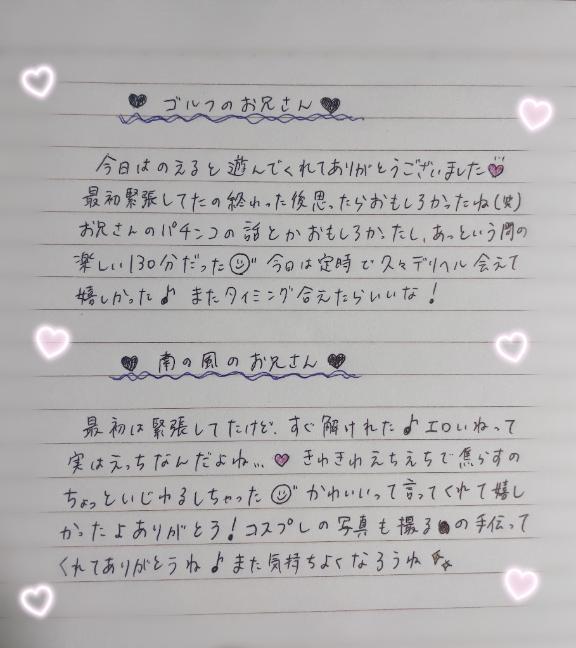 ♥ ゴルフのお兄さん ♥
今日はのえると遊んでくれてありがとうございました♥
最初緊張してたの終わった後思ったらおもしろかったね(笑)
お兄さんのパチンコの話とかおもしろかったし、あっという間の
楽しい130分だった☺ 今日は定時で久々デリヘル会えて
嬉しかった♪ またタイミング合えたらいいな！
♥ 南の風のお兄さん ♥
最初は緊張してたけど、すぐ解けれた♪エロいねって
実はえっちなんだよね… ♥ きわきわえちえちで焦らすの
ちょっといじわるしちゃった☺ かわいいって言ってくれて嬉し
かったよありがとう！コスプレの写真も撮るの手伝って
くれてありがとうね♪また気持ちよくなろうね✨